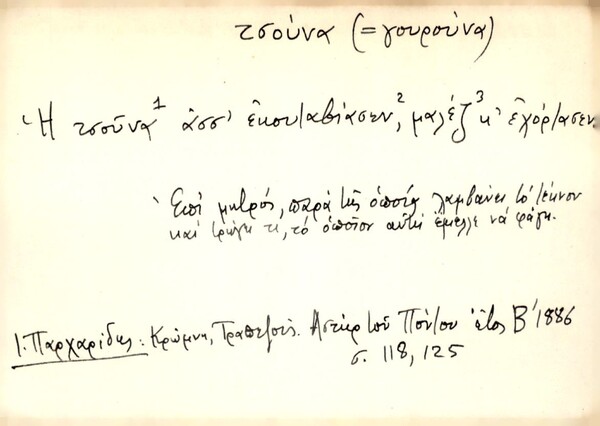 τσούνα (= γουρούνα)
Ἡ τσούνα¹ ἀσσ' ἐκουταβίασεν,² μαλέζ³ κ' ἐχόρτασεν
Ἐπὶ μητρός, παρὰ τῆς ὁποίας λαμβάνει τὸ τέκνον
καὶ τρώγη τι, τὸ ὁποῖον αὐτὴ ἔμελλε νὰ φάγῃ.
Ι. Παρχαρίδης: Κρώμνη, Τραπεζοῦς. Ἀστὴρ τοῦ Πόντου ἔτος Β' 1886
σ. 118, 125